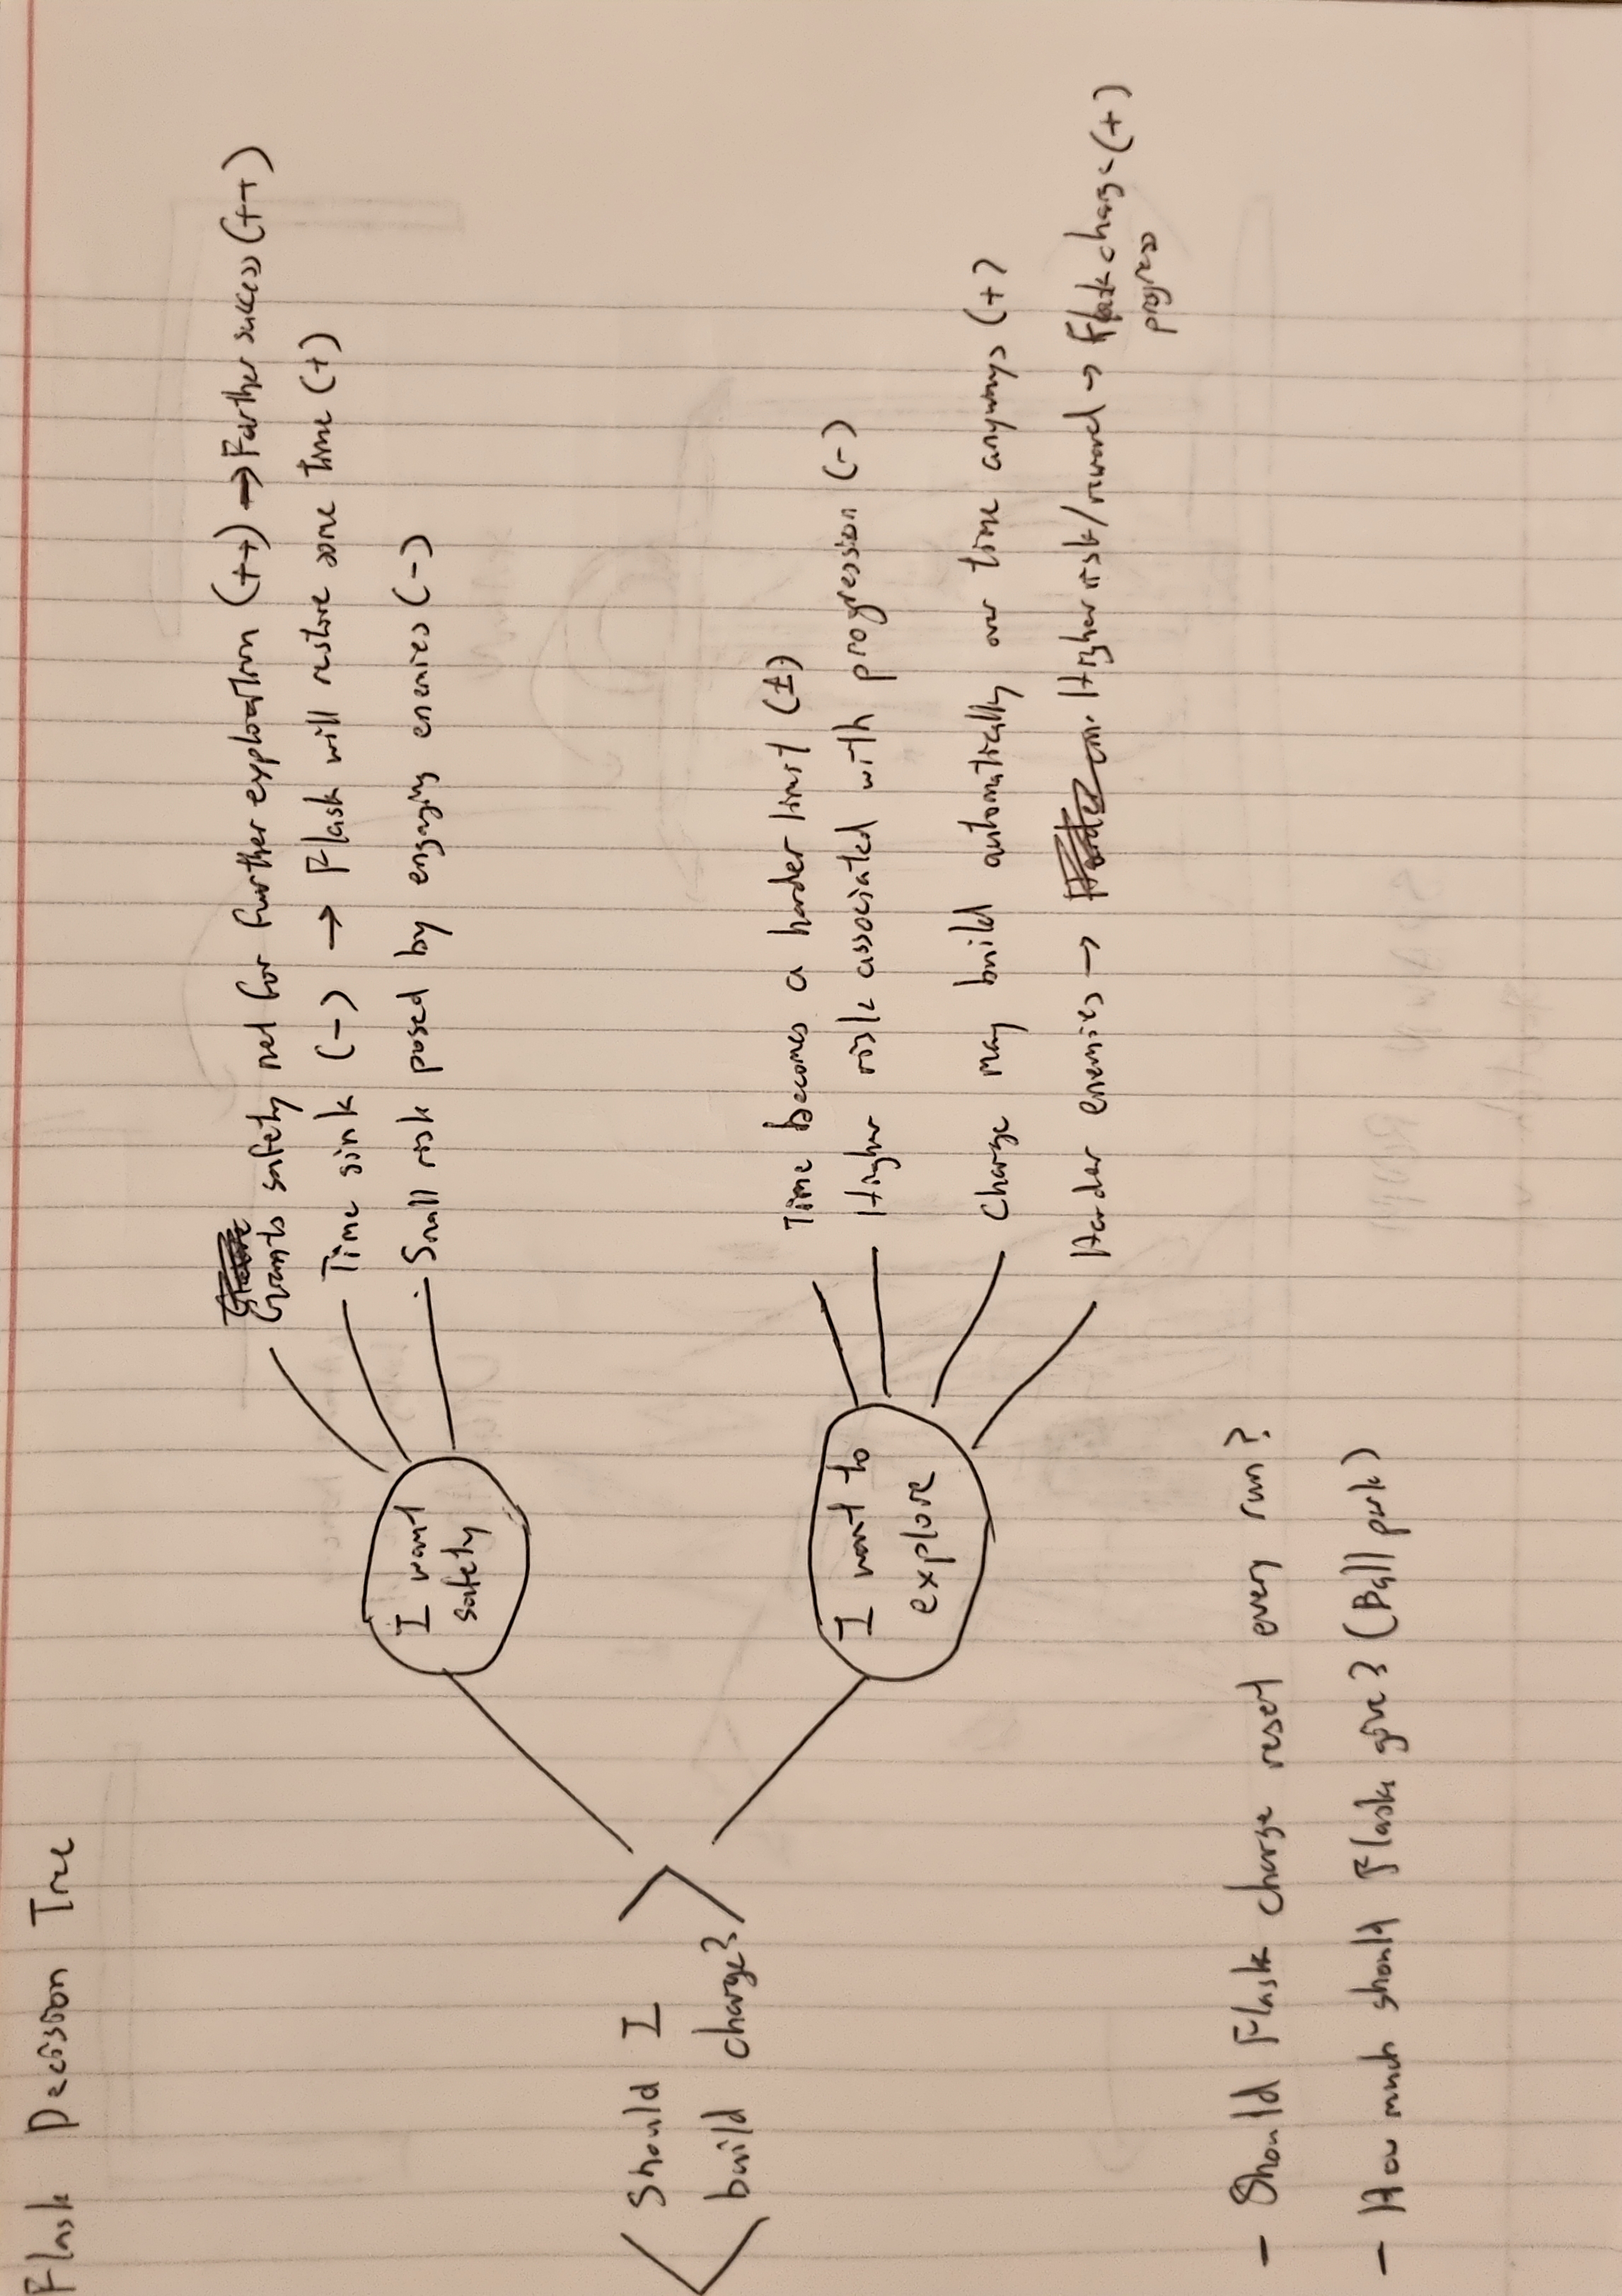 Flask Decision Tree
Grants safety net for further exploration (++) → Farther success (++)
Time sink (-) → Flask will restore some time (+)
Small risk posed by engaging enemies (-)
I want
safety
Should I
build charge?
Time becomes a harder limit (±)
Higher risk associated with progression (-)
I want to
explore
Charge may build automatically over time anyways (+)
Harder enemies → Higher risk/reward → Flask charge (+)
progress
- Should Flask charge reset every run?
- How much should Flask give? (Ball park)